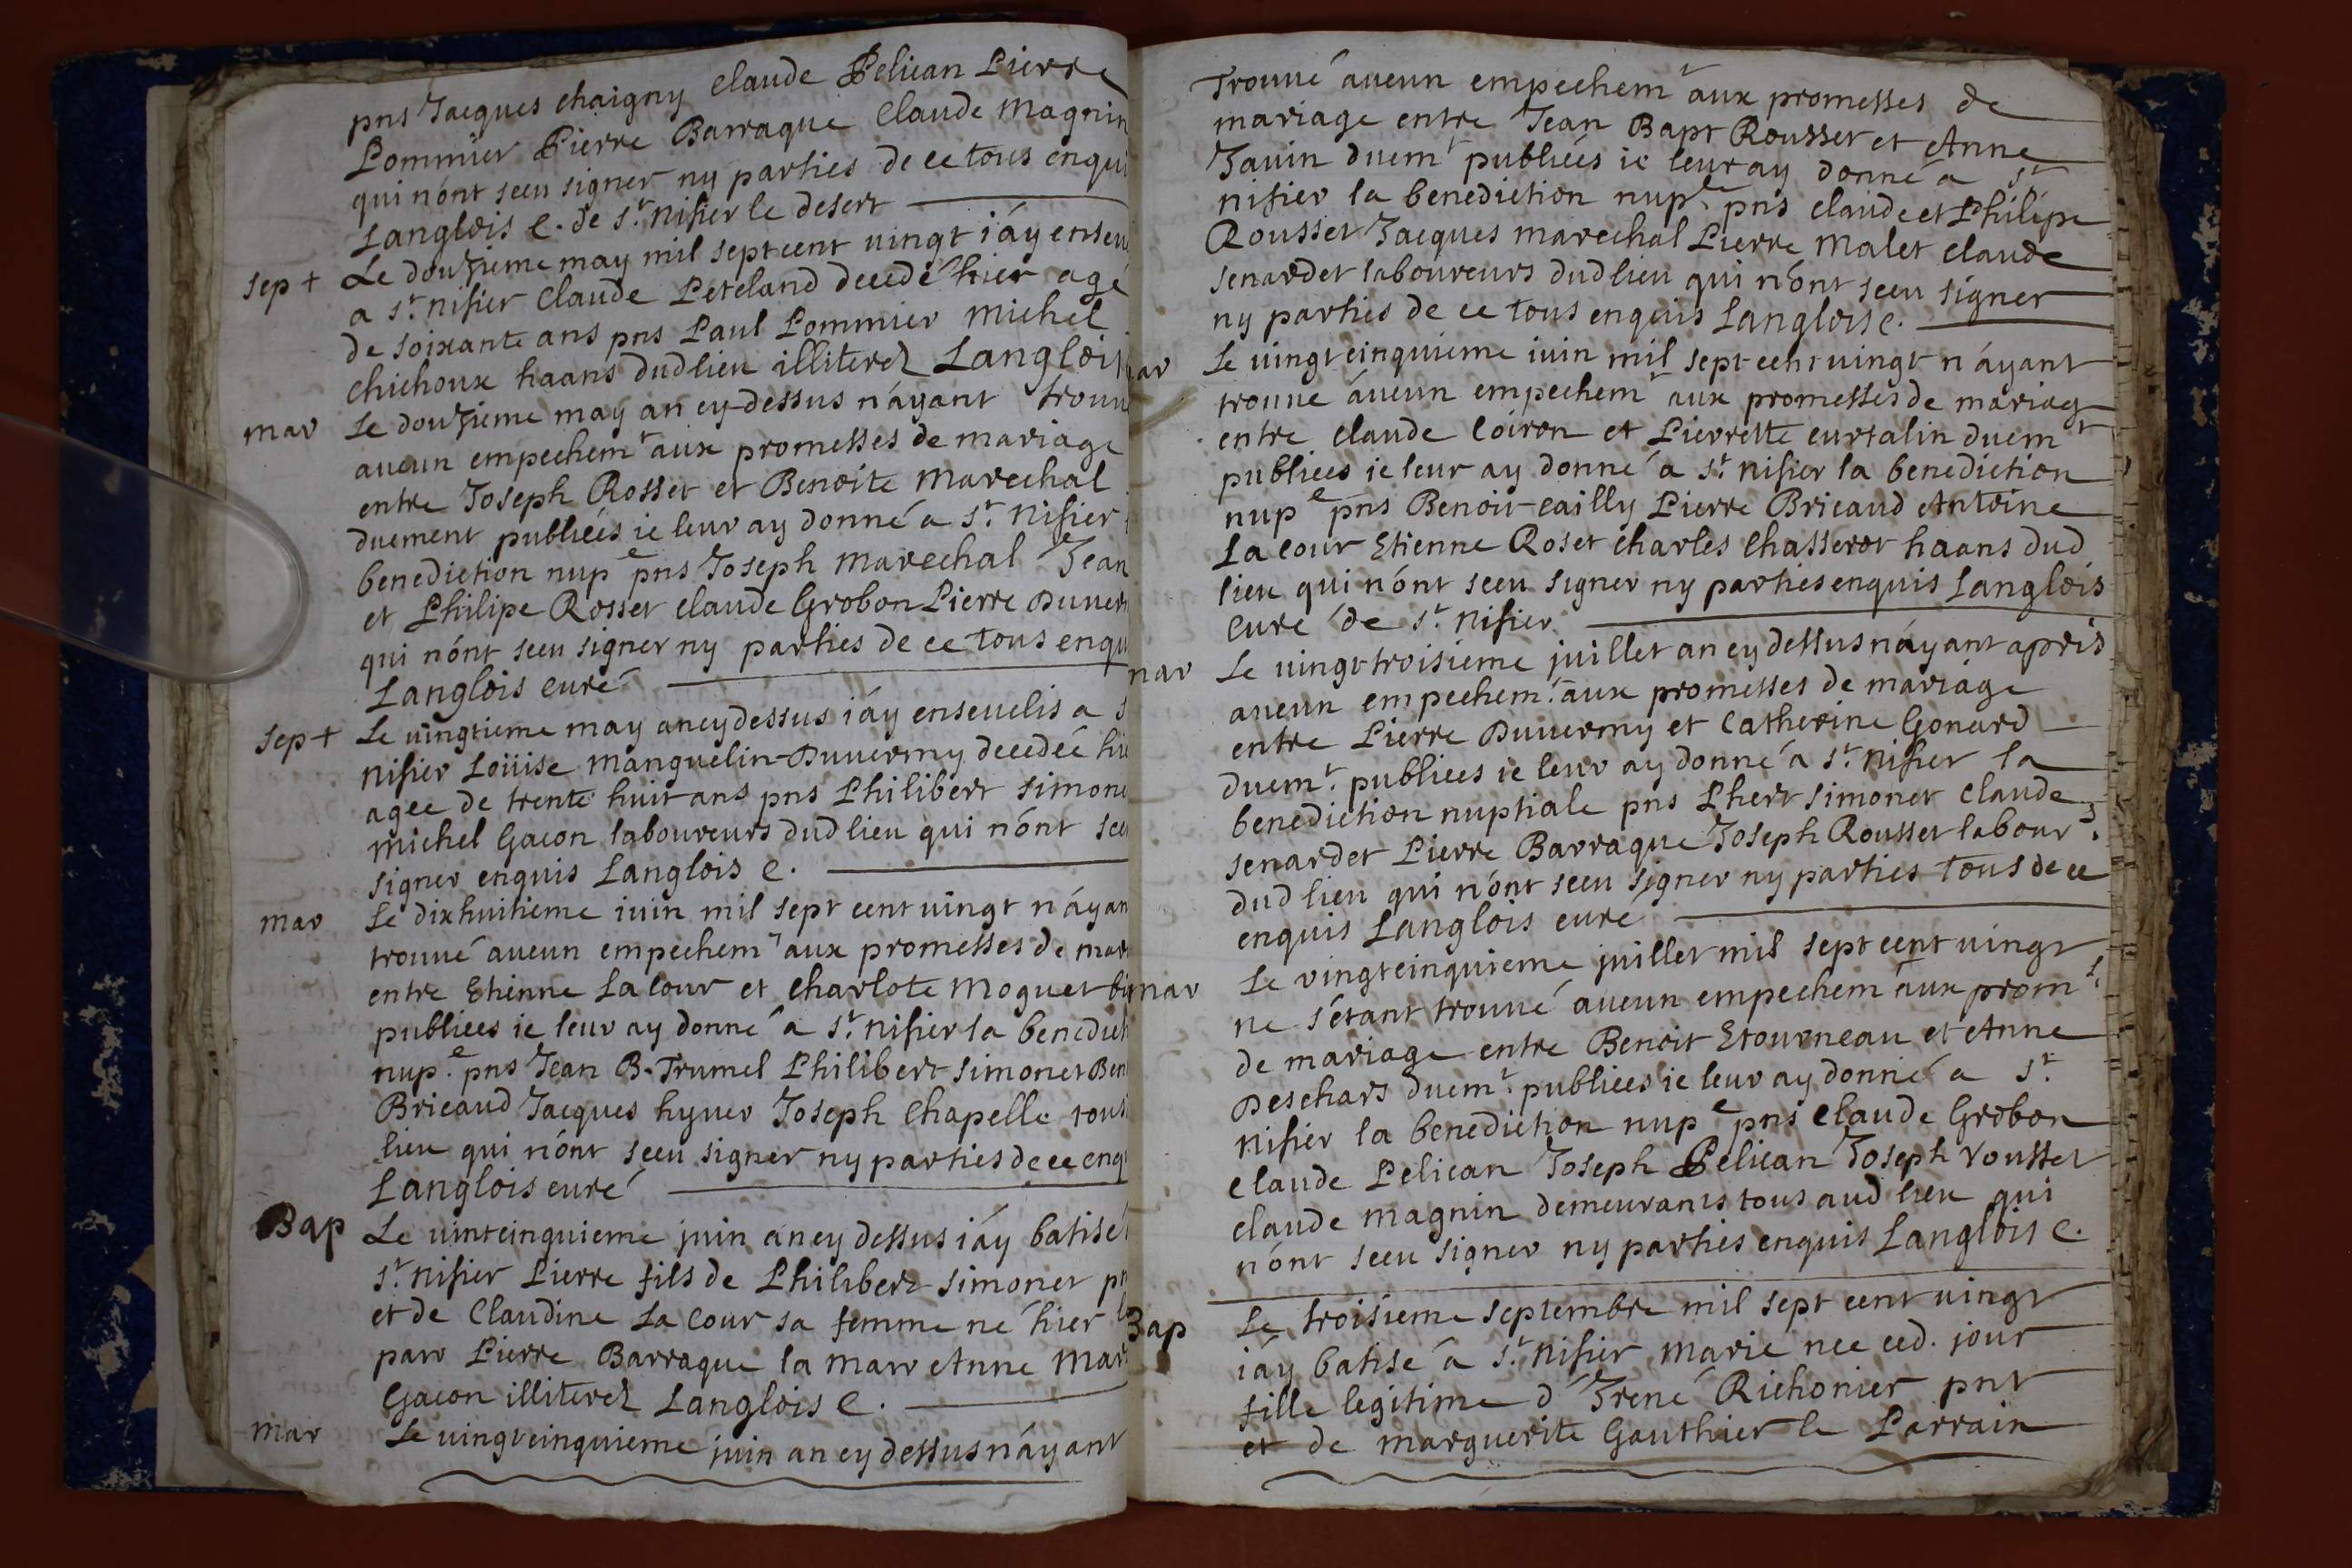 pns Jacques chaigny Claude Pelican Pierre
Pommier Pierre Barraque Claude Magnin
qui nónt sceu signer ny parties de ce tous enqui
Langlois C. de St. Nisier le desert
Sep + Le douzieme may mil septcent vingt iáy enseu
a St. nisier Claude Peteland decedé hier agé
de soixante ans pns Paul Pommier Michel
Chichoux haans dudlieu illiterez Langlois
mar Le douzieme may an cy-dessus náyant trouu
aucun empechemt aux promesses de mariage
entre Joseph Rosset et Benoite Marechal
duement publiées ie leur ay donné a St. Nisier
benediction nupe pns Joseph Marechal Jean
et Philipe Rosset claude Grobon Pierre Duver
qui nónt sceu signer ny parties de ce tous enqu
Langlois curé
Sep + Le vingtieme may ancydessus iáy enseuelis a S
Nisier Loüise Manguelin-Duvermy decedée hie
agee de trente huit ans pns Philibert Simone
Michel Gacon laboureurs dudlieu qui nónt sce
signer enquis Langlois C.
mar Le dixhuitieme iuin mil sept cent vingt náyan
trouué aucun empechemt aux promesses de mar
entre Etienne La Cour et Charlote Moguet
publiees ie leur ay donné a St. Nisier la benedict
nupe. pns Jean B. Trumel Philibert Simonet Ben
Bricaud Jacques hyver Joseph Chapelle tous
lieu qui nónt sceu signer ny parties de ce enq
Langlois curé
Bap Le vintcinquieme juin ancy dessus iáy batisé
St. Nisier Pierre fils de Philibert Simonet pn
et de Claudine La Cour sa femme né hier
parr Pierre Barraque la marr Anne Mar
Gacon illiterez Langlois C.
Mar Le vingtcinquieme juin an cy dessus náyant
Trouué aucun empechemt aux promesses de
mariage entre Jean Bapt Rousset et Anne
Javin duemt publiées ie leur ay donné a St
nisier la benediction nupe. pns claude et Philipe
Rousset Jacques marechal Pierre Malet claude
Senardet laboureurs dudlieu qui nónt sceu signer
ny parties de ce tous enquis Langlois C.
ar Le vingtcinquieme iuin mil sept-cent vingt náyant
trouué áucun empechemt aux promesses de mariag
entre claude Coiron et Pierrette curtalin duemt
publiees ie leur ay donné a St. nisier la benediction
nupe pns Benoit-cailly Pierre Bricaud Antoine
La cour Etienne Roset charles Chasserot haans dud
lieu qui nónt sceu signer ny parties enquis Langlois
Curé de St. Nisier
mar Le vingttroisieme juillet an cy dessus náyant apris
aucun empechemt. aux promesses de mariage
entre Pierre Duvermy et Catherine Gonard
duemt. publiees ie leur ay donné a St. Nisier la
benediction nuptiale pns Phert Simonet Claude
Senardet Pierre Barraque Joseph Rousset labour s.
dud lieu qui nónt sceu signer ny parties tous de ce
enquis Langlois curé
mar Le vingtcinquieme juillet mil sept cent vingt
ne sétant trouué aucun empechem aux proms.
de mariage entre Benoit Etourneau et Anne
Deschars duemt. publiees ie leur ay donné a St.
Nisier la benediction nupe pns Claude Grobon
Claude Pelican Joseph Pelican Joseph rousset
claude Magnin demeurants tous aud lieu qui
nónt sceu signer ny parties enquis Langlois C.
Bap Le troisieme septembre mil sept cent vingt
iáy batisé á St. Nisier Marie nee ced. jour
fille legitime d Irené Richonier pnt
et de marguerite Gauthier le Parrain